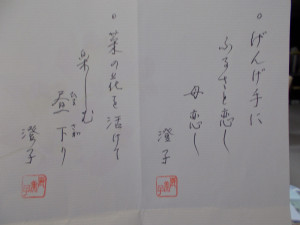 ○げんげ手に
ふるさと恋し
母恋し
澄子
○菜の花を活けて
楽しむ
昼下り
澄子